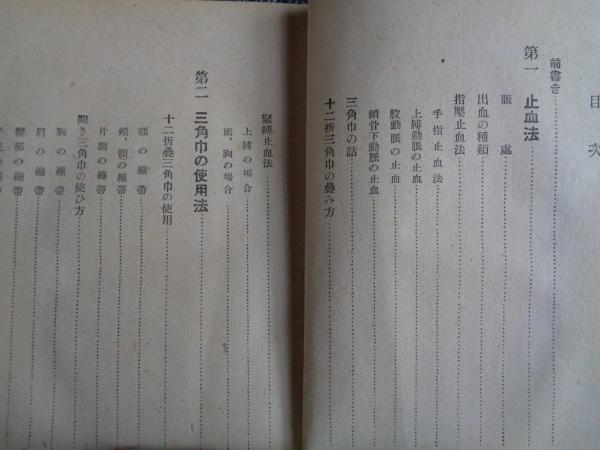 目次
前書き
第一 止血法
脈處
出血の種類
指壓止血法
手指止血法
上膊動脈の止血
股動脈の止血
鎖骨下動脈の止血
三角巾の話
十二折三角巾の疊み方
緊縛止血法
上膊の場合
頭、胸の場合
第二 三角巾の使用法
十二折疊三角巾の使用
額の繃帶
頰、顎の繃帶
片眼の繃帶
開き三角巾の使ひ方
胸の繃帶
肩の繃帶
臀部の繃帶